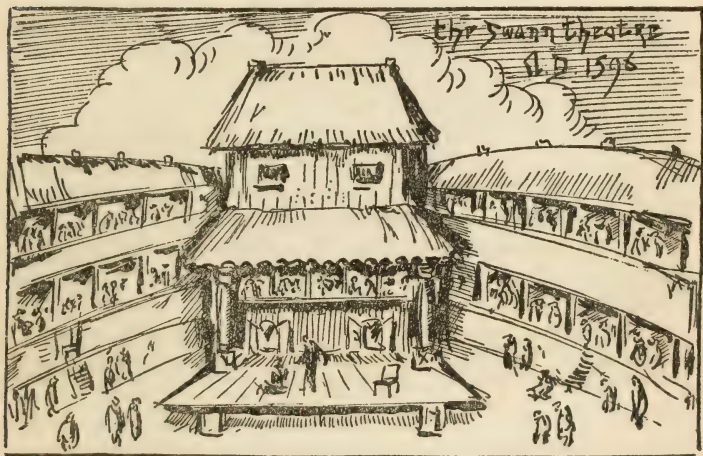 the Swann theatre
A. D. 1596